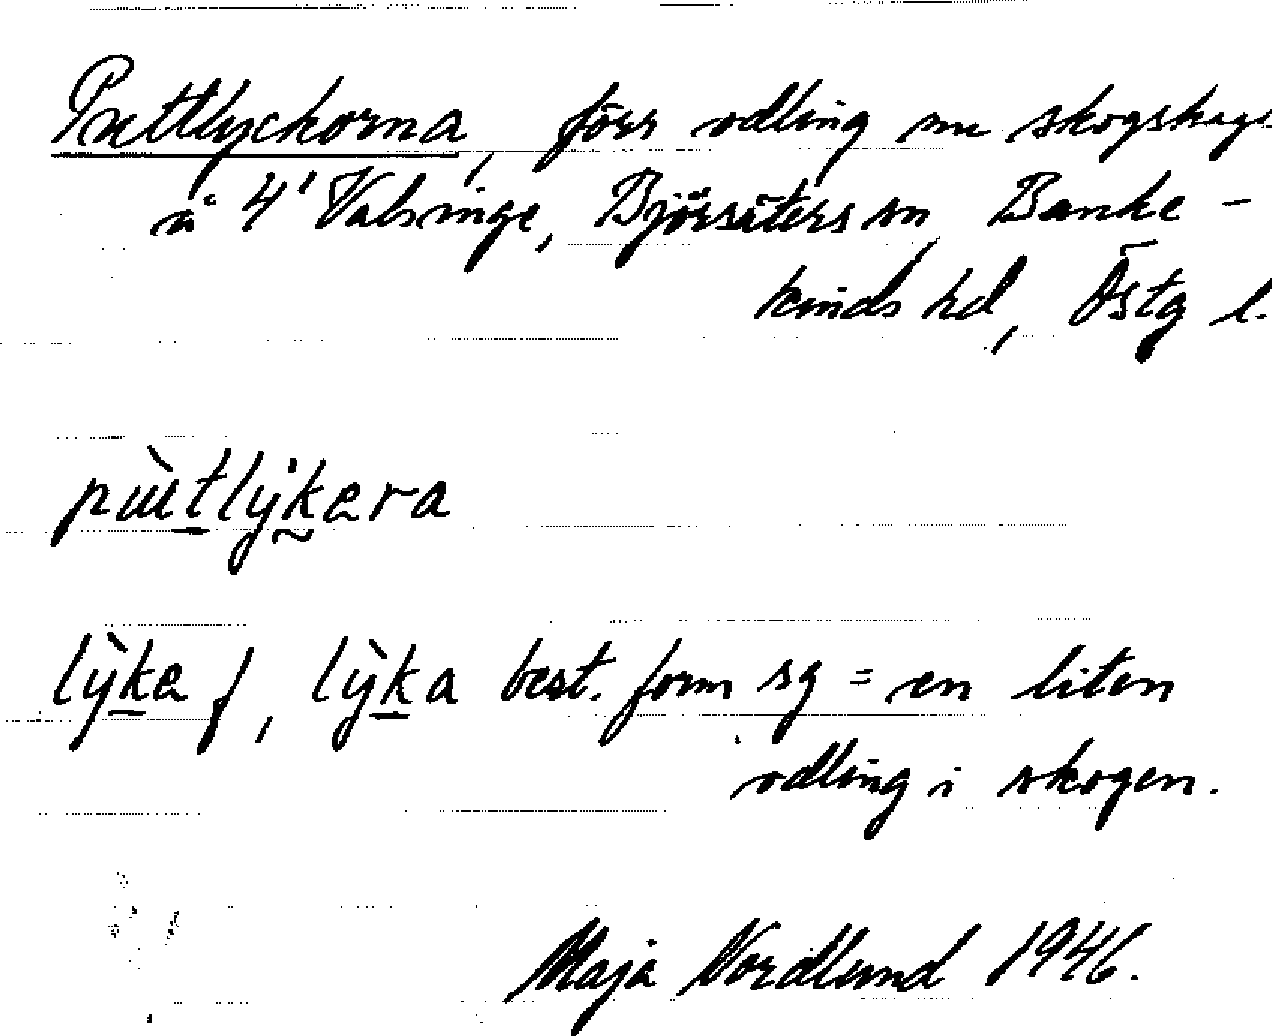 Puttlyckorna, förr odling nu skogshage
å 4' Valsinge, Björsäters sn, Banke-
kinds hd, Östg l.
pùtlykera
lỳke f, lỳka best. form sg = en liten
odling i skogen.
Maja Nordlund 1946.